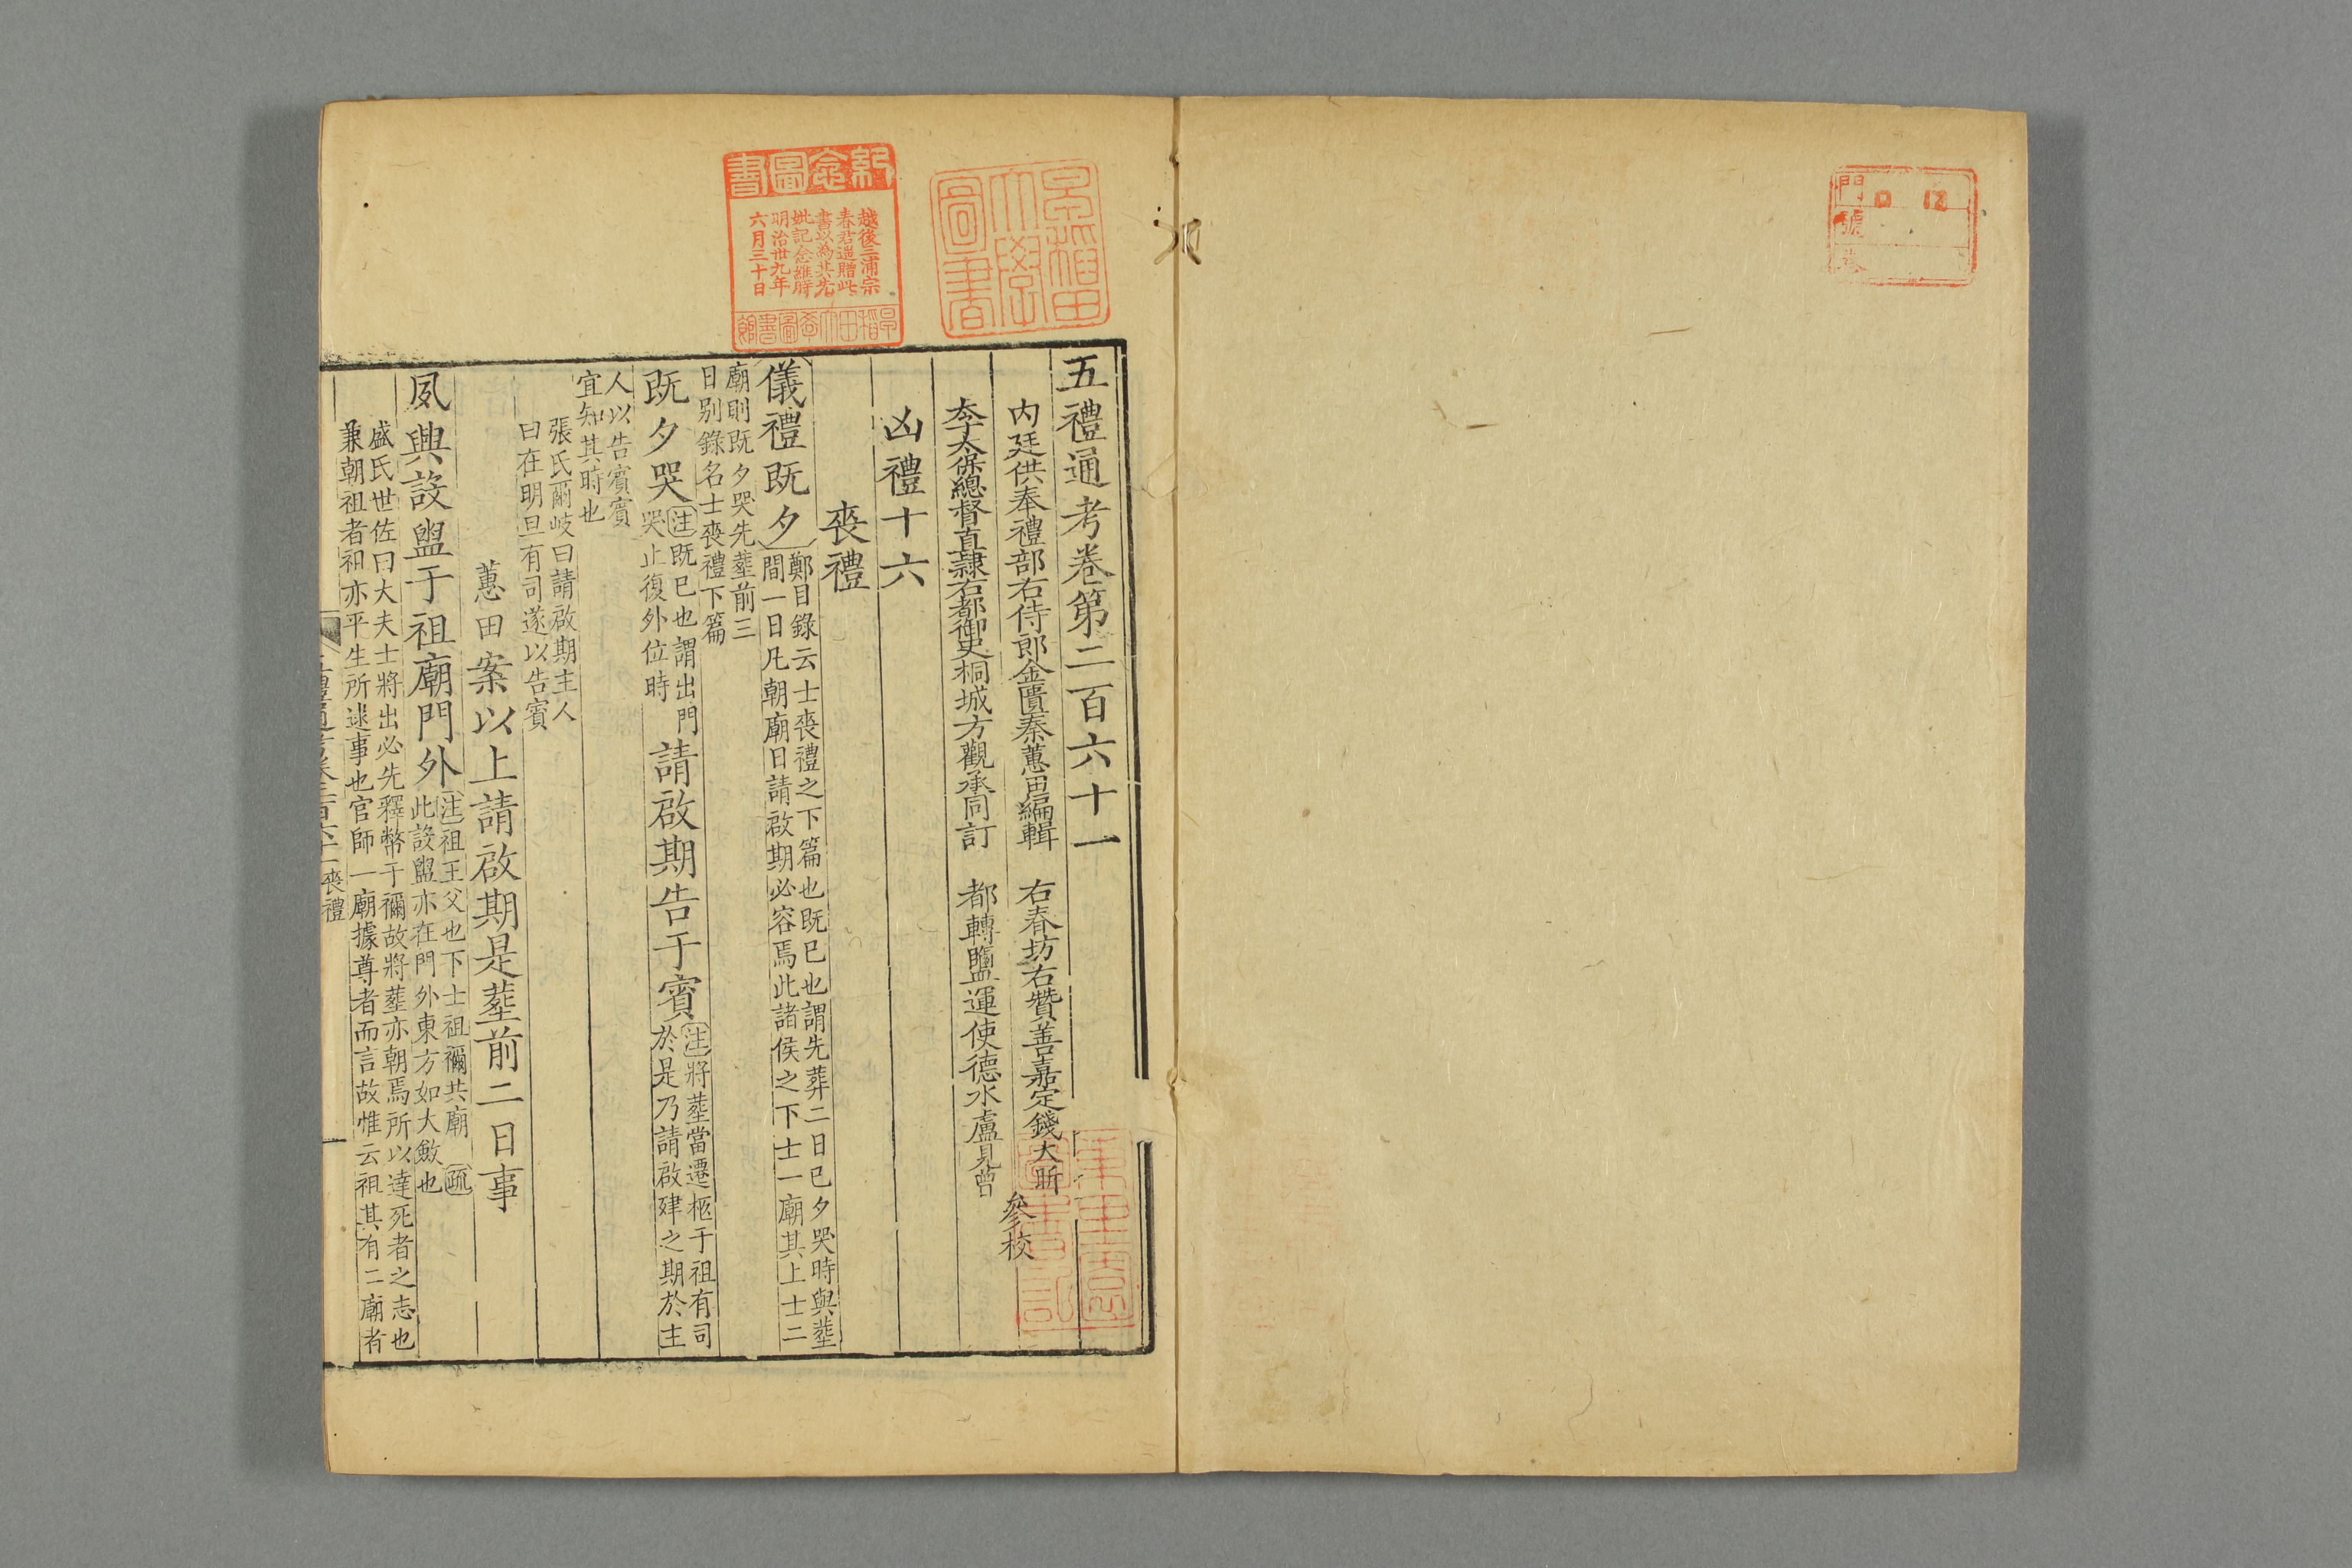 五禮通考卷第二百六十一
內廷供奉禮部右侍郎金匱秦蕙田編輯 右春坊右贊善嘉定錢大昕
太子太保總督直隸右都御史桐城方觀承同訂 都轉鹽運使德水盧見曾
參校
凶禮十六
喪禮
儀禮既夕
鄭目錄云士喪禮之下篇也既已也謂先葬二日已夕哭時與葬
間一日凡朝廟日請啟期必容焉此諸侯之下士一廟其上士二
廟則既夕哭先葬前三
日別錄名士喪禮下篇
既夕哭
注既已也謂出門
哭止復外位時
請啟期告于賓
注將葬當遷柩于祖有司
於是乃請啟肂之期於主
人以告賓賓
宜知其時也
張氏爾岐曰請啟期主人
曰在明旦有司遂以告賓
蕙田案以上請啟期是葬前二日事
夙興設盥于祖廟門外
注祖王父也下士祖禰共廟 疏
此設盥亦在門外東方如大斂也
盛氏世佐曰大夫士將出必先釋幣于禰故將葬亦朝焉所以達死者之志也
兼朝祖者祖亦平生所逮事也官師一廟據尊者而言故惟云祖其有二廟者
喪禮
一
紀念圖書
越後三浦宗
春君遺贈此
書以為其先
妣記念維時
明治卅九年
六月三十日
早稻田大學圖書館
早稲田大學圖書
門
號